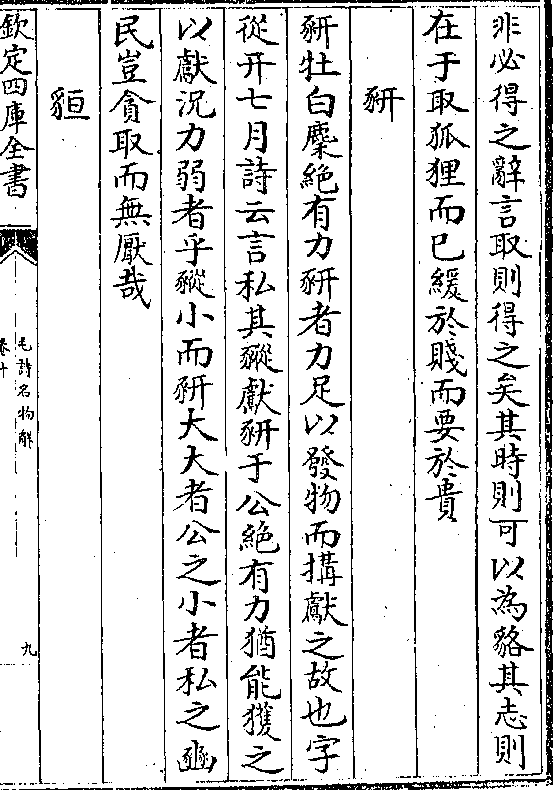 非必得之辭言取則得之矣其時則可以為貉其志則
在于取狐狸而已緩於賤而要於貴
豣
豣牡白麇絶有力豣者力足以發物而搆獻之故也字
從幵七月詩云言私其豵獻豣于公絶有力猶能獲之
以獻況力弱者乎豵小而豣大大者公之小者私之豳
民豈貪取而無厭哉
貆
欽定四庫全書
毛詩名物解
卷十
九